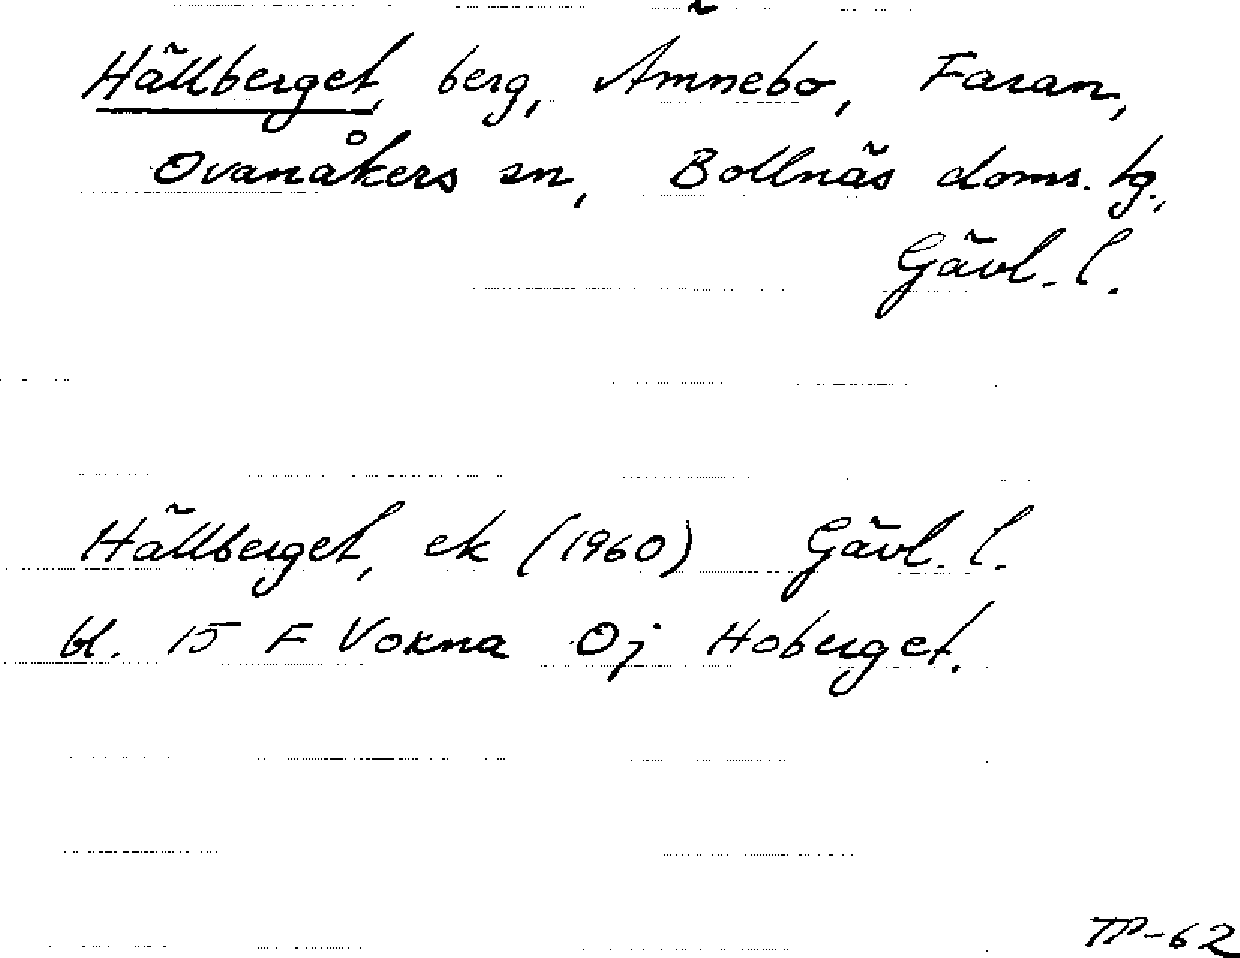 Hällberget, berg, Ämnebo, Faran,
Ovanåkers sn, Bollnäs doms. tg.,
Gävl. l.
Hällberget, ek (1960) Gävl. l.
bl. 15 F Voxna Oj Hoberget.
TP-62